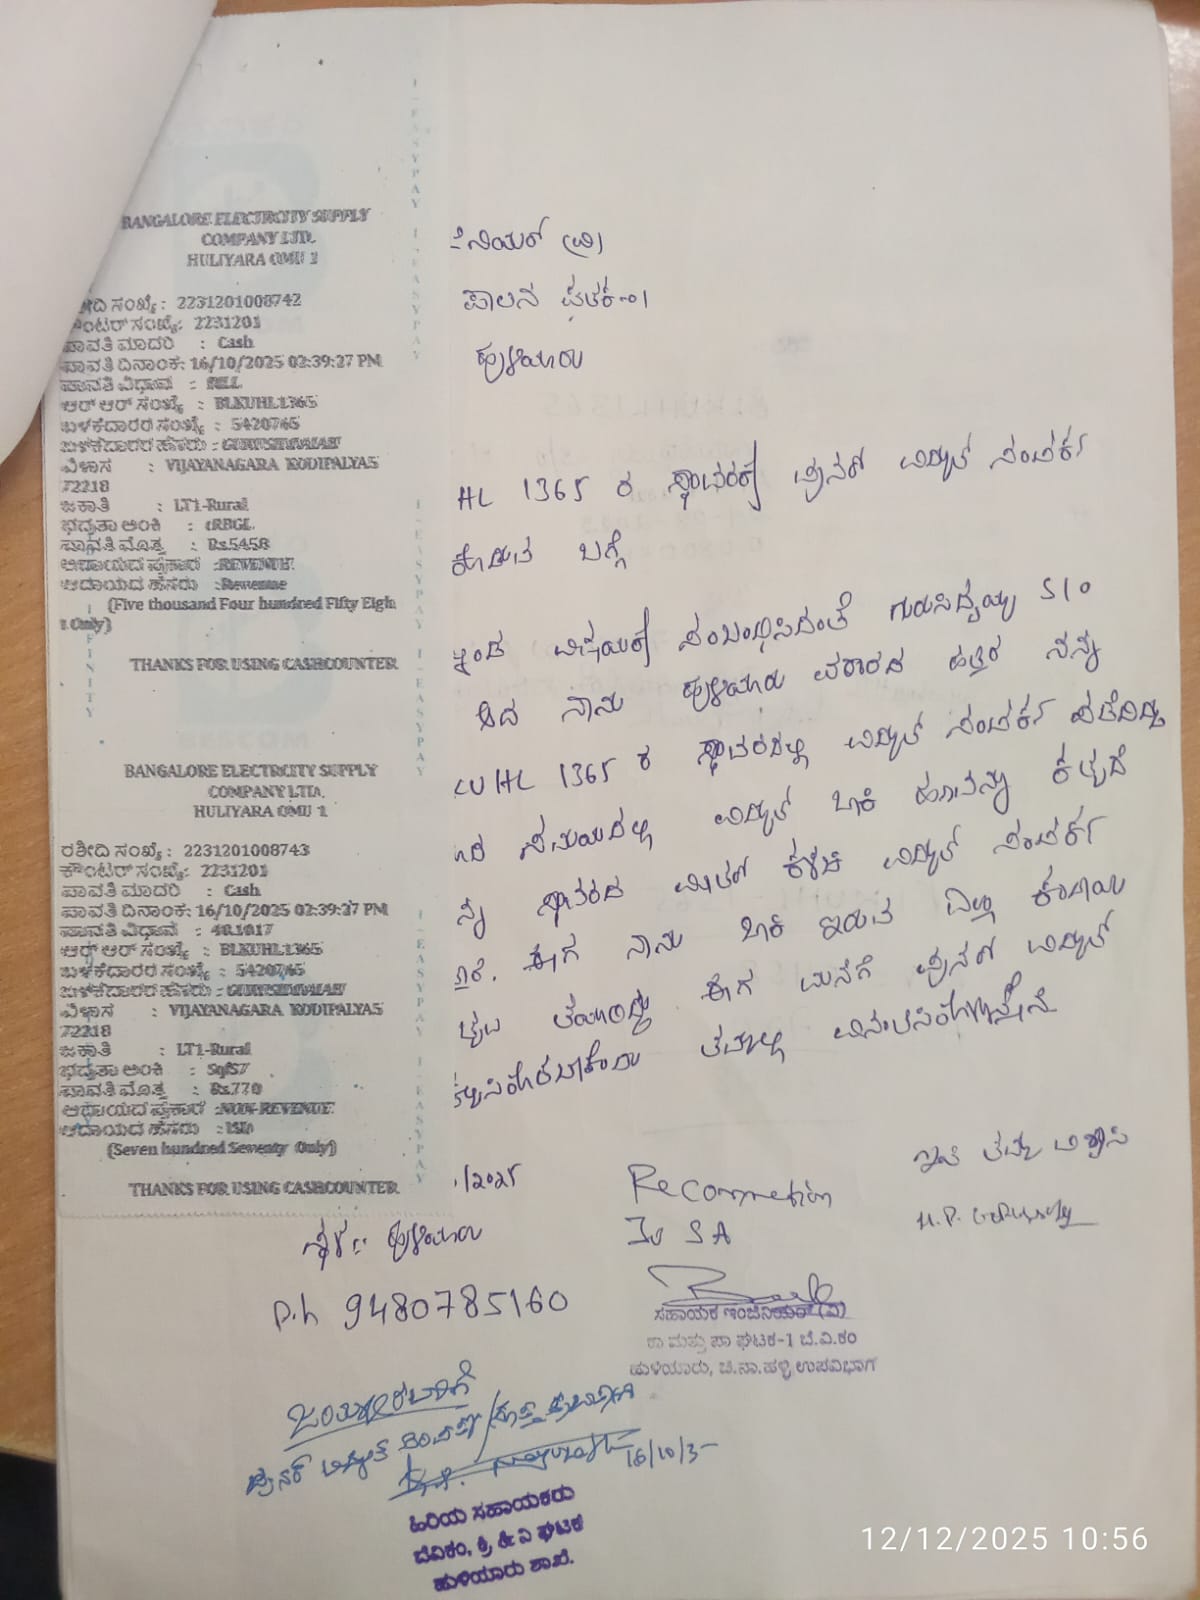 BANGALORE ELECTRCITY SUPPLY
COMPANY LTD.
HULIYARA OMU 1
ೀದಿ ಸಂಖ್ಯೆ: 2231201008742
ಕೌಂಟರ್ ಸಂಖ್ಯೆ: 2231201
ಪಾವತಿ ಮಾದರಿ : Cash
ಪಾವತಿ ದಿನಾಂಕ: 16/10/2025 02:39:27 PM
ಪಾವತಿ ವಿಧಾನ : BILL
ಆರ್ ಆರ್ ಸಂಖ್ಯೆ : BLKUHL1365
ಬಳಕೆದಾರರ ಸಂಖ್ಯೆ : 5420765
ಬಳಕೆದಾರರ ಹೆಸರು :
ವಿಳಾಸ : VIJAYANAGARA KODIPALYA5
72218
ಜಕಾತಿ : LT1-Rural
ಭದ್ರತಾ ಅಂಕಿ : tRBGL
ಪಾವತಿ ಮೊತ್ತ : Rs.5458
ಆದಾಯದ ಪ್ರಕಾರ :REVENUE
ಆದಾಯದ ಹೆಸರು :Revenue
(Five thousand Four hundred Fifty Eigh
t Only)
THANKS FOR USING CASHCOUNTER
BANGALORE ELECTRCITY SUPPLY
COMPANY LTD.
HULIYARA OMU 1
ರಶೀದಿ ಸಂಖ್ಯೆ: 2231201008743
ಕೌಂಟರ್ ಸಂಖ್ಯೆ: 2231201
ಪಾವತಿ ಮಾದರಿ : Cash
ಪಾವತಿ ದಿನಾಂಕ: 16/10/2025 02:39:27 PM
ಪಾವತಿ ವಿಧಾನ : 48.1017
ಆರ್ ಆರ್ ಸಂಖ್ಯೆ : BLKUHL1365
ಬಳಕೆದಾರರ ಸಂಖ್ಯೆ : 5420765
ಬಳಕೆದಾರರ ಹೆಸರು :
ವಿಳಾಸ : VIJAYANAGARA KODIPALYA5
72218
ಜಕಾತಿ : LT1-Rural
ಭದ್ರತಾ ಅಂಕಿ : SqfS7
ಪಾವತಿ ಮೊತ್ತ : Rs.770
ಆದಾಯದ ಪ್ರಕಾರ :NON-REVENUE
ಆದಾಯದ ಹೆಸರು :
(Seven hundred Seventy Only)
THANKS FOR USING CASHCOUNTER
ನಿಯರ್ (ವಿ)
ಪಾಲನ ಘಟಕ-01
ಹುಳಿಯಾರು
HL 1365 ರ ಸ್ಥಾವರಕ್ಕೆ ಪುನರ್ ವಿದ್ಯುತ್ ಸಂಪರ್ಕ
ಕೊಡುವ ಬಗ್ಗೆ
ವಿಷಯಕ್ಕೆ ಸಂಬಂಧಿಸಿದಂತೆ ಗುರುಸಿದ್ದಯ್ಯ S/o
ಆದ ನಾನು ಹುಳಿಯಾರು ಹತ್ತಿರ ನನ್ನ
UHL 1365 ರ ಸ್ಥಾವರದಲ್ಲಿ ವಿದ್ಯುತ್ ಸಂಪರ್ಕ ಪಡೆದಿದ್ದು
ಸಮಯದಲ್ಲಿ ವಿದ್ಯುತ್ ಬಾಕಿ ಹಣವನ್ನು ಕಟ್ಟದೆ
ಸ್ಥಾವರದ ಮೀಟರ್ ವಿದ್ಯುತ್ ಸಂಪರ್ಕ
ಈಗ ನಾನು ಬಾಕಿ ಇರುವ ಎಲ್ಲಾ ಕಂದಾಯ
ಈಗ ಮನೆಗೆ ಪುನರ್ ವಿದ್ಯುತ್
ತಮ್ಮಲ್ಲಿ
/2025
ಇತಿ ತಮ್ಮ ವಿಶ್ವಾಸಿ
ಸ್ಥಳ:- ಹುಳಿಯಾರು
P.h 9480785160
Reconnection
To SA
ಸಹಾಯಕ ಇಂಜಿನಿಯರ್ (ವಿ)
ಕಾ ಮತ್ತು ಪಾ ಘಟಕ-1 ಬೆ.ವಿ.ಕಂ
ಹುಳಿಯಾರು, ಚಿ.ನಾ.ಹಳ್ಳಿ ಉಪವಿಭಾಗ
16/10/3-
ಹಿರಿಯ ಸಹಾಯಕರು
ಬೆವಿಕಂ, ಘಟಕ
ಹುಳಿಯಾರು ಶಾಖೆ.
12/12/2025 10:56